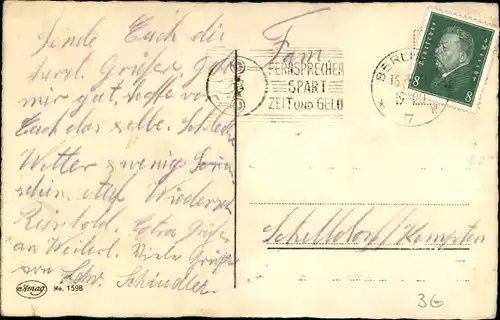 Sende Euch die
herzl. Grüße. Geht
mir gut, hoffe von
Euch dasselbe. Schlecht
Wetter u wenig Sonn
schein. Auf Wiederseh
Reinhold. Extra Grüße
an Weiherl. Viele Grüße
von Schw. Schindler.
Amag No. 1598
Fam.
FERNSPRECHER
SPART
ZEIT UND GELD
BERLIN
7
8 8
Schelldorf/Kempten
3€